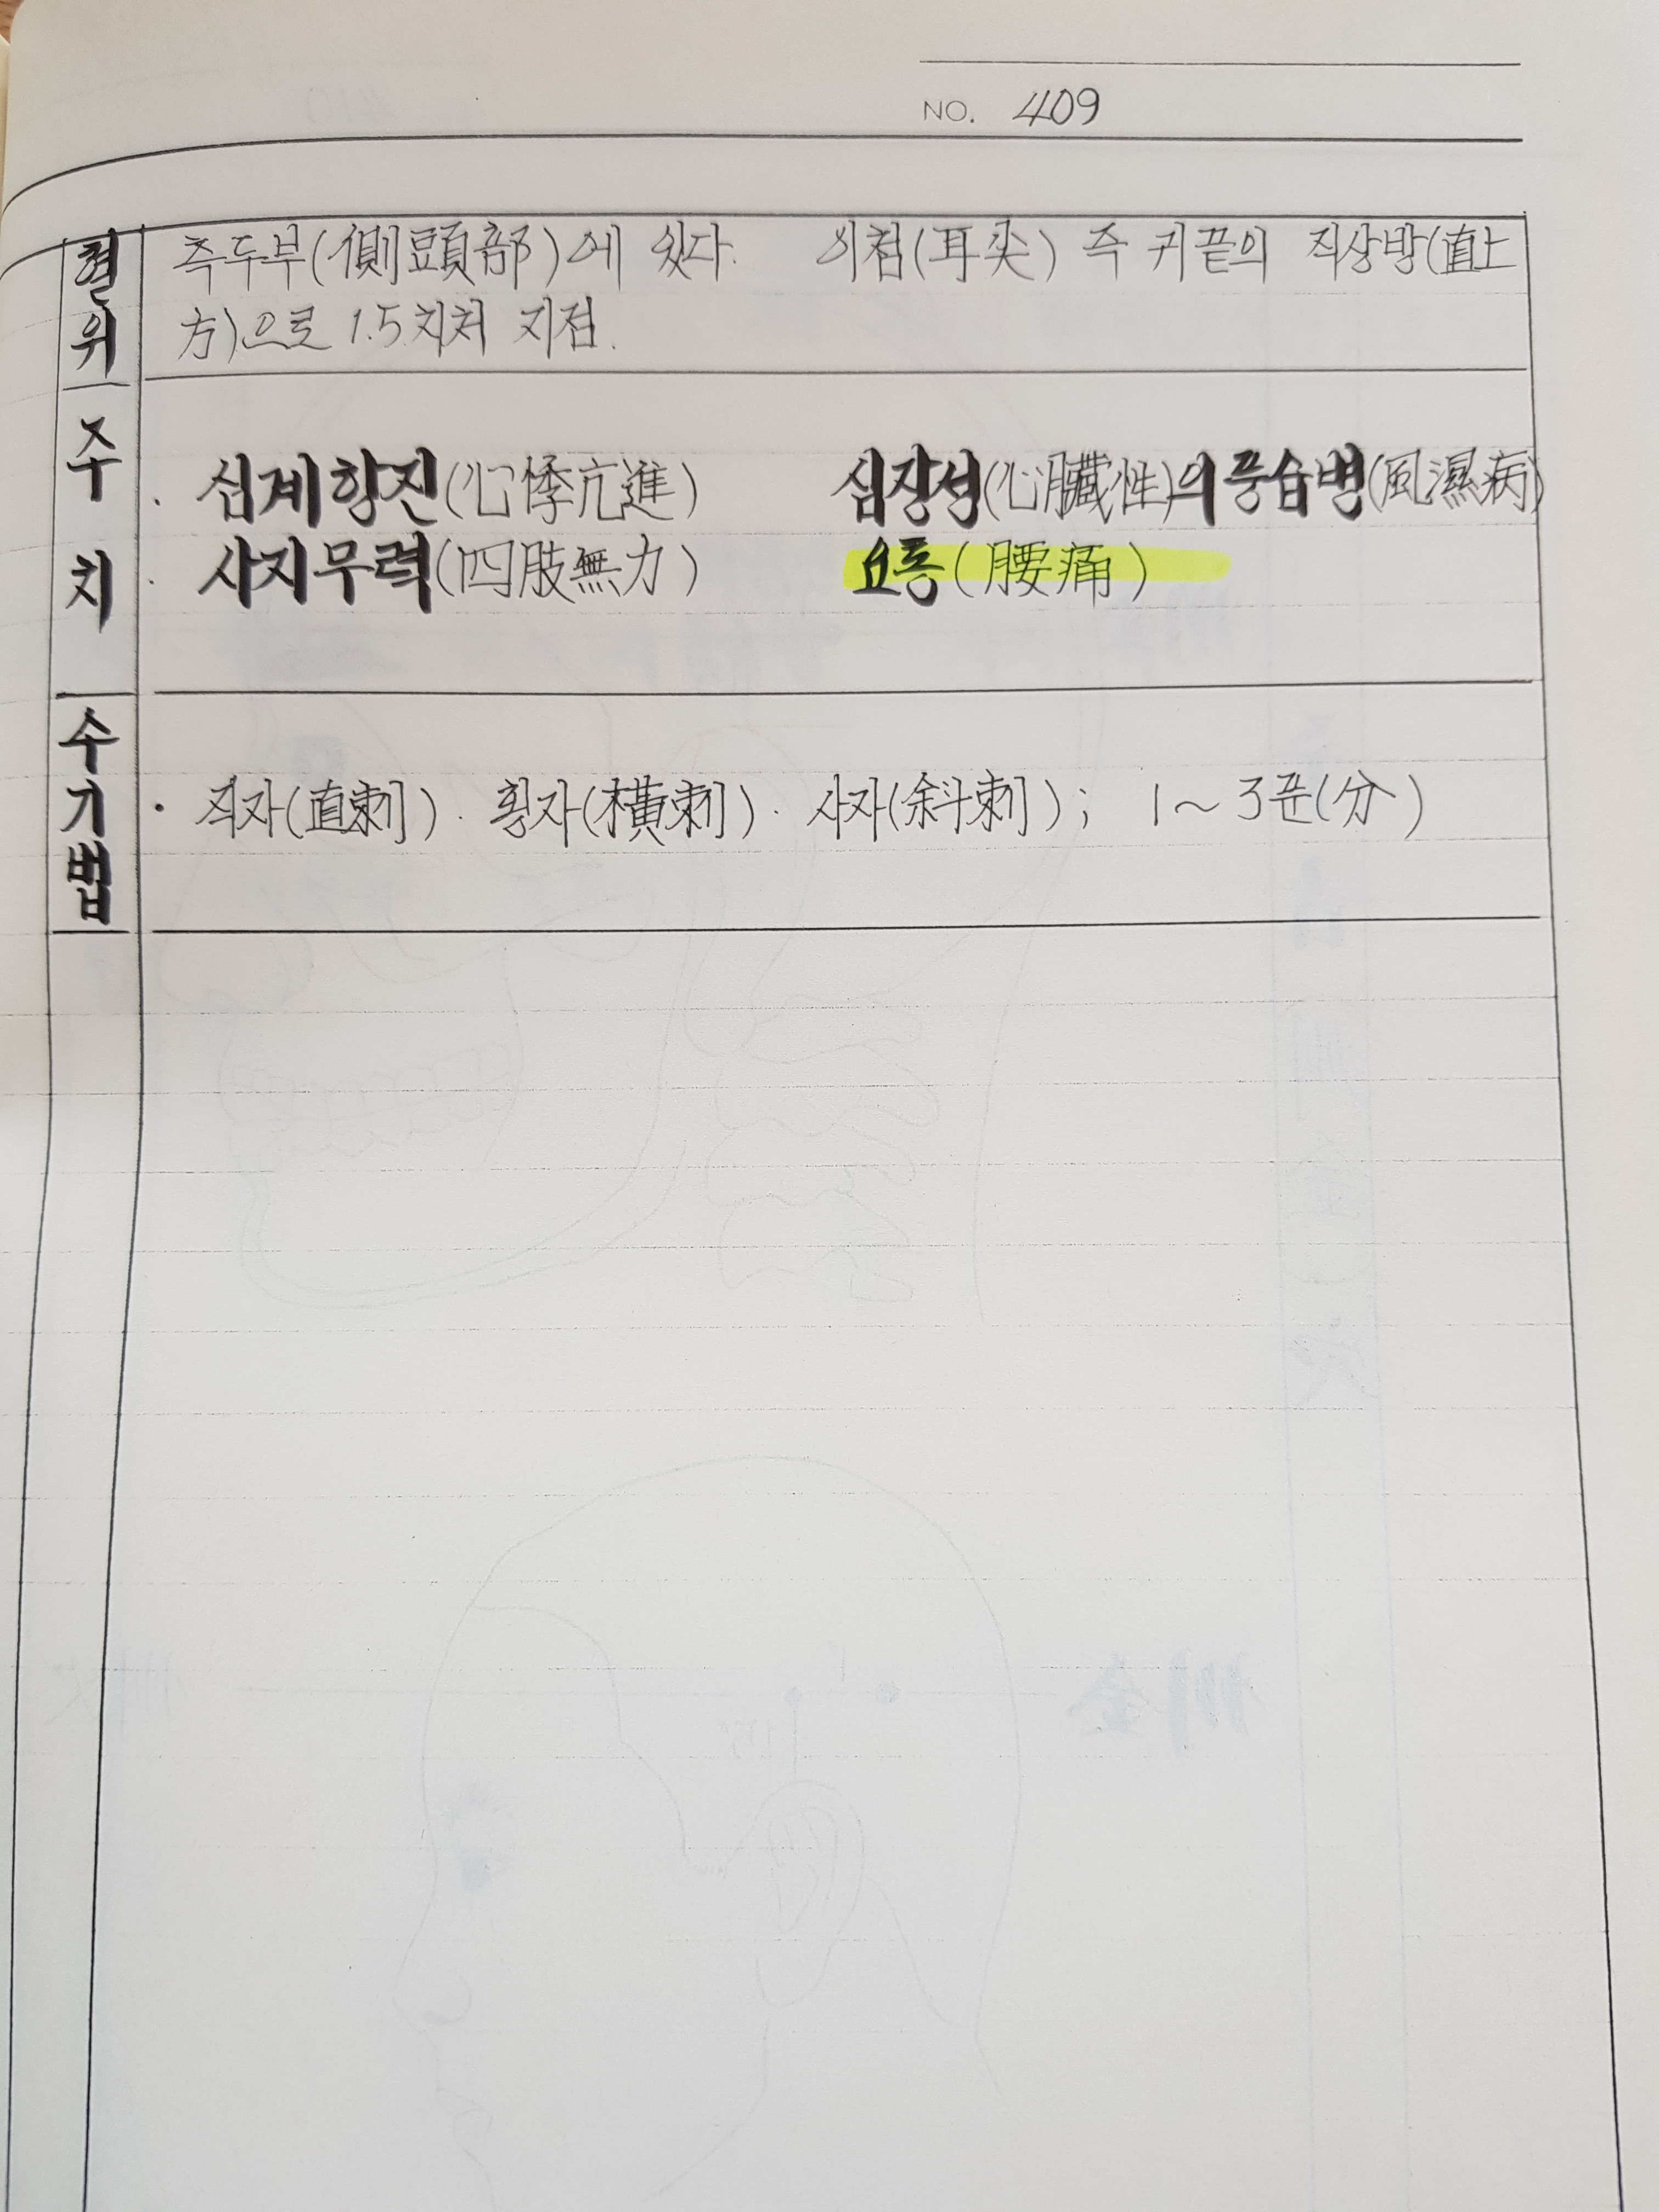 NO. 409
혈위 측두부(側頭部)에 있다. 이첨(耳尖) 즉 귀끝의 직상방(直上
方)으로 1.5치처 지점.
주치 · 심계항진(心悸亢進) 심장성(心臟性)의 풍습병(風濕病)
· 사지무력(四肢無力) 요통(腰痛)
수기법 · 직자(直刺). 횡자(橫刺). 사자(斜刺); 1~3푼(分)